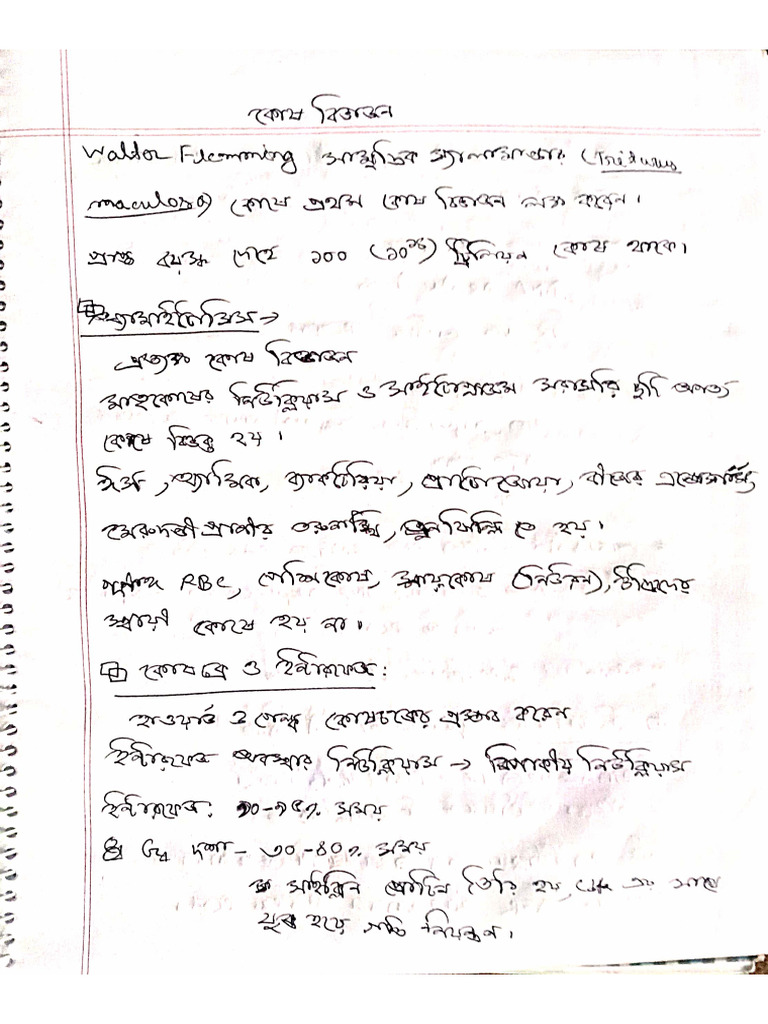 কোষ বিভাজন
Walter Flemming সামুদ্রিক স্যালামান্ডার (Triturus
maculosa) কোষে প্রথম কোষ বিভাজন লক্ষ্য করেন।
প্রাপ্ত বয়স্ক দেহে ১০০ ট্রিলিয়ন কোষ থাকে।
অ্যামাইটোসিস →
প্রত্যক্ষ কোষ বিভাজন
মাতৃকোষের নিউক্লিয়াস ও সাইটোপ্লাজম সরাসরি দুটি অপত্য
কোষে বিভক্ত হয়।
ঈস্ট, অ্যামিবা, ব্যাকটেরিয়া, প্রোটোজোয়া, বীজের
মেরুদন্ডী প্রাণীর তরুণাস্থি, ভ্রূণঝিল্লি তে হয়।
RBC, পেশিকোষ, স্নায়ুকোষ (নিউরন), উদ্ভিদের
স্থায়ী কোষে হয় না।
কোষচক্র ও ইন্টারফেজ:
হাওয়ার্ড ও পেল্ক কোষচক্রের প্রস্তাব করেন
ইন্টারফেজ অবস্থার নিউক্লিয়াস → বিপাকীয় নিউক্লিয়াস
ইন্টারফেজ: ৯০-৯৫% সময়
G₁ দশা - ৩০-৪০% সময়
সাইক্লিন প্রোটিন তৈরি হয়, Cdk এর সাথে
যুক্ত হয়ে গতি নিয়ন্ত্রন।